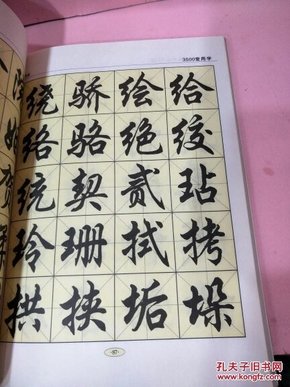 3500常用字
绕骄绘给
络骆绝绞
统契贰玷
玲珊拭拷
拱挟垢垛
·87·
孔夫子旧书网